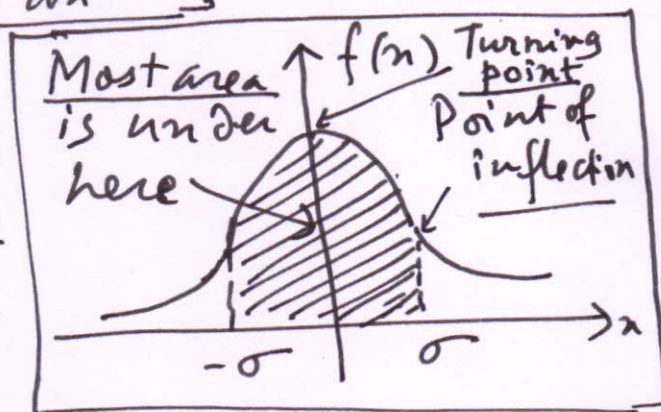 Most area
is under
here
f(x)
Turning
point
Point of
inflection
x
-σ
σ